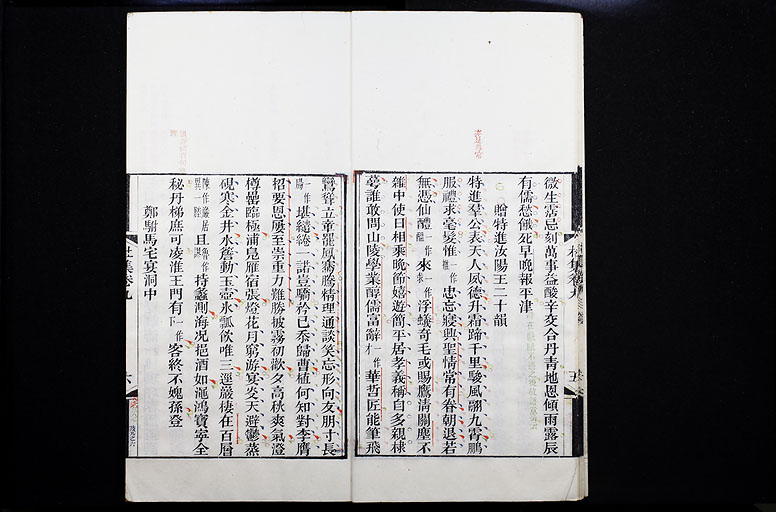 微生霑忌刻萬事益酸辛交合丹青地恩傾雨露辰
有儒愁餓死早晚報平津
贈特進汝陽王二十韻
特進羣公表天人夙德升霜蹄千里駿風翮九霄鵬
服禮求毫髮惟一作忠忘寢興聖情常有眷朝退若
無憑仙醴一作來一作浮蟻奇毛或賜鷹清關塵不
雜中使日相乘晚節嬉遊簡平居孝義稱自多親棣
萼誰敢問山陵學業醇儒富辭才一作華哲匠能筆飛
鸞聳立章罷鳳騫騰精理通談笑忘形向友朋寸長
一作腸堪繾綣一諾豈驕矜已忝歸曹植何知對李膺
招要恩屢至崇重力難勝披霧初歡夕高秋爽氣澄
樽罍臨極浦鳧雁宿張燈花月窮游宴炎天避鬱蒸
硯寒金井水簷動玉壺冰瓢飲唯三逕巖棲在百層
且持蠡測海况挹酒如澠鴻寶寧全
秘丹梯庶可凌淮王門有下一作客終不媿孫登
鄭駙馬宅宴洞中
杜集卷九
五
杜集卷九
六